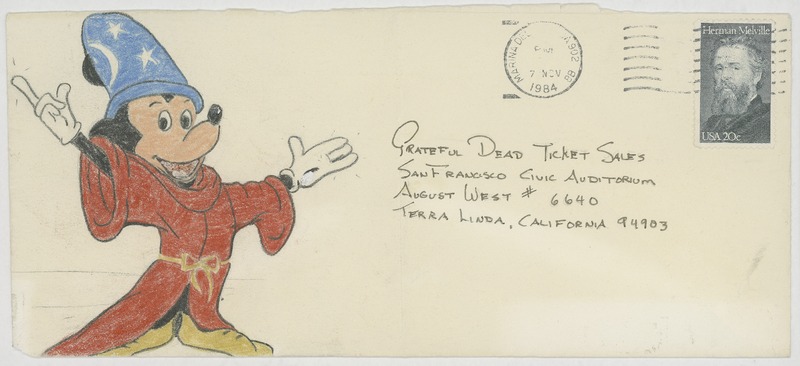 MARINA DEL
7 NOV
1984
Herman Melville
USA 20c
GRATEFUL DEAD TICKET SALES
SAN FRANCISCO CIVIC AUDITORIUM
AUGUST WEST # 6640
TERRA LINDA, CALIFORNIA 94903